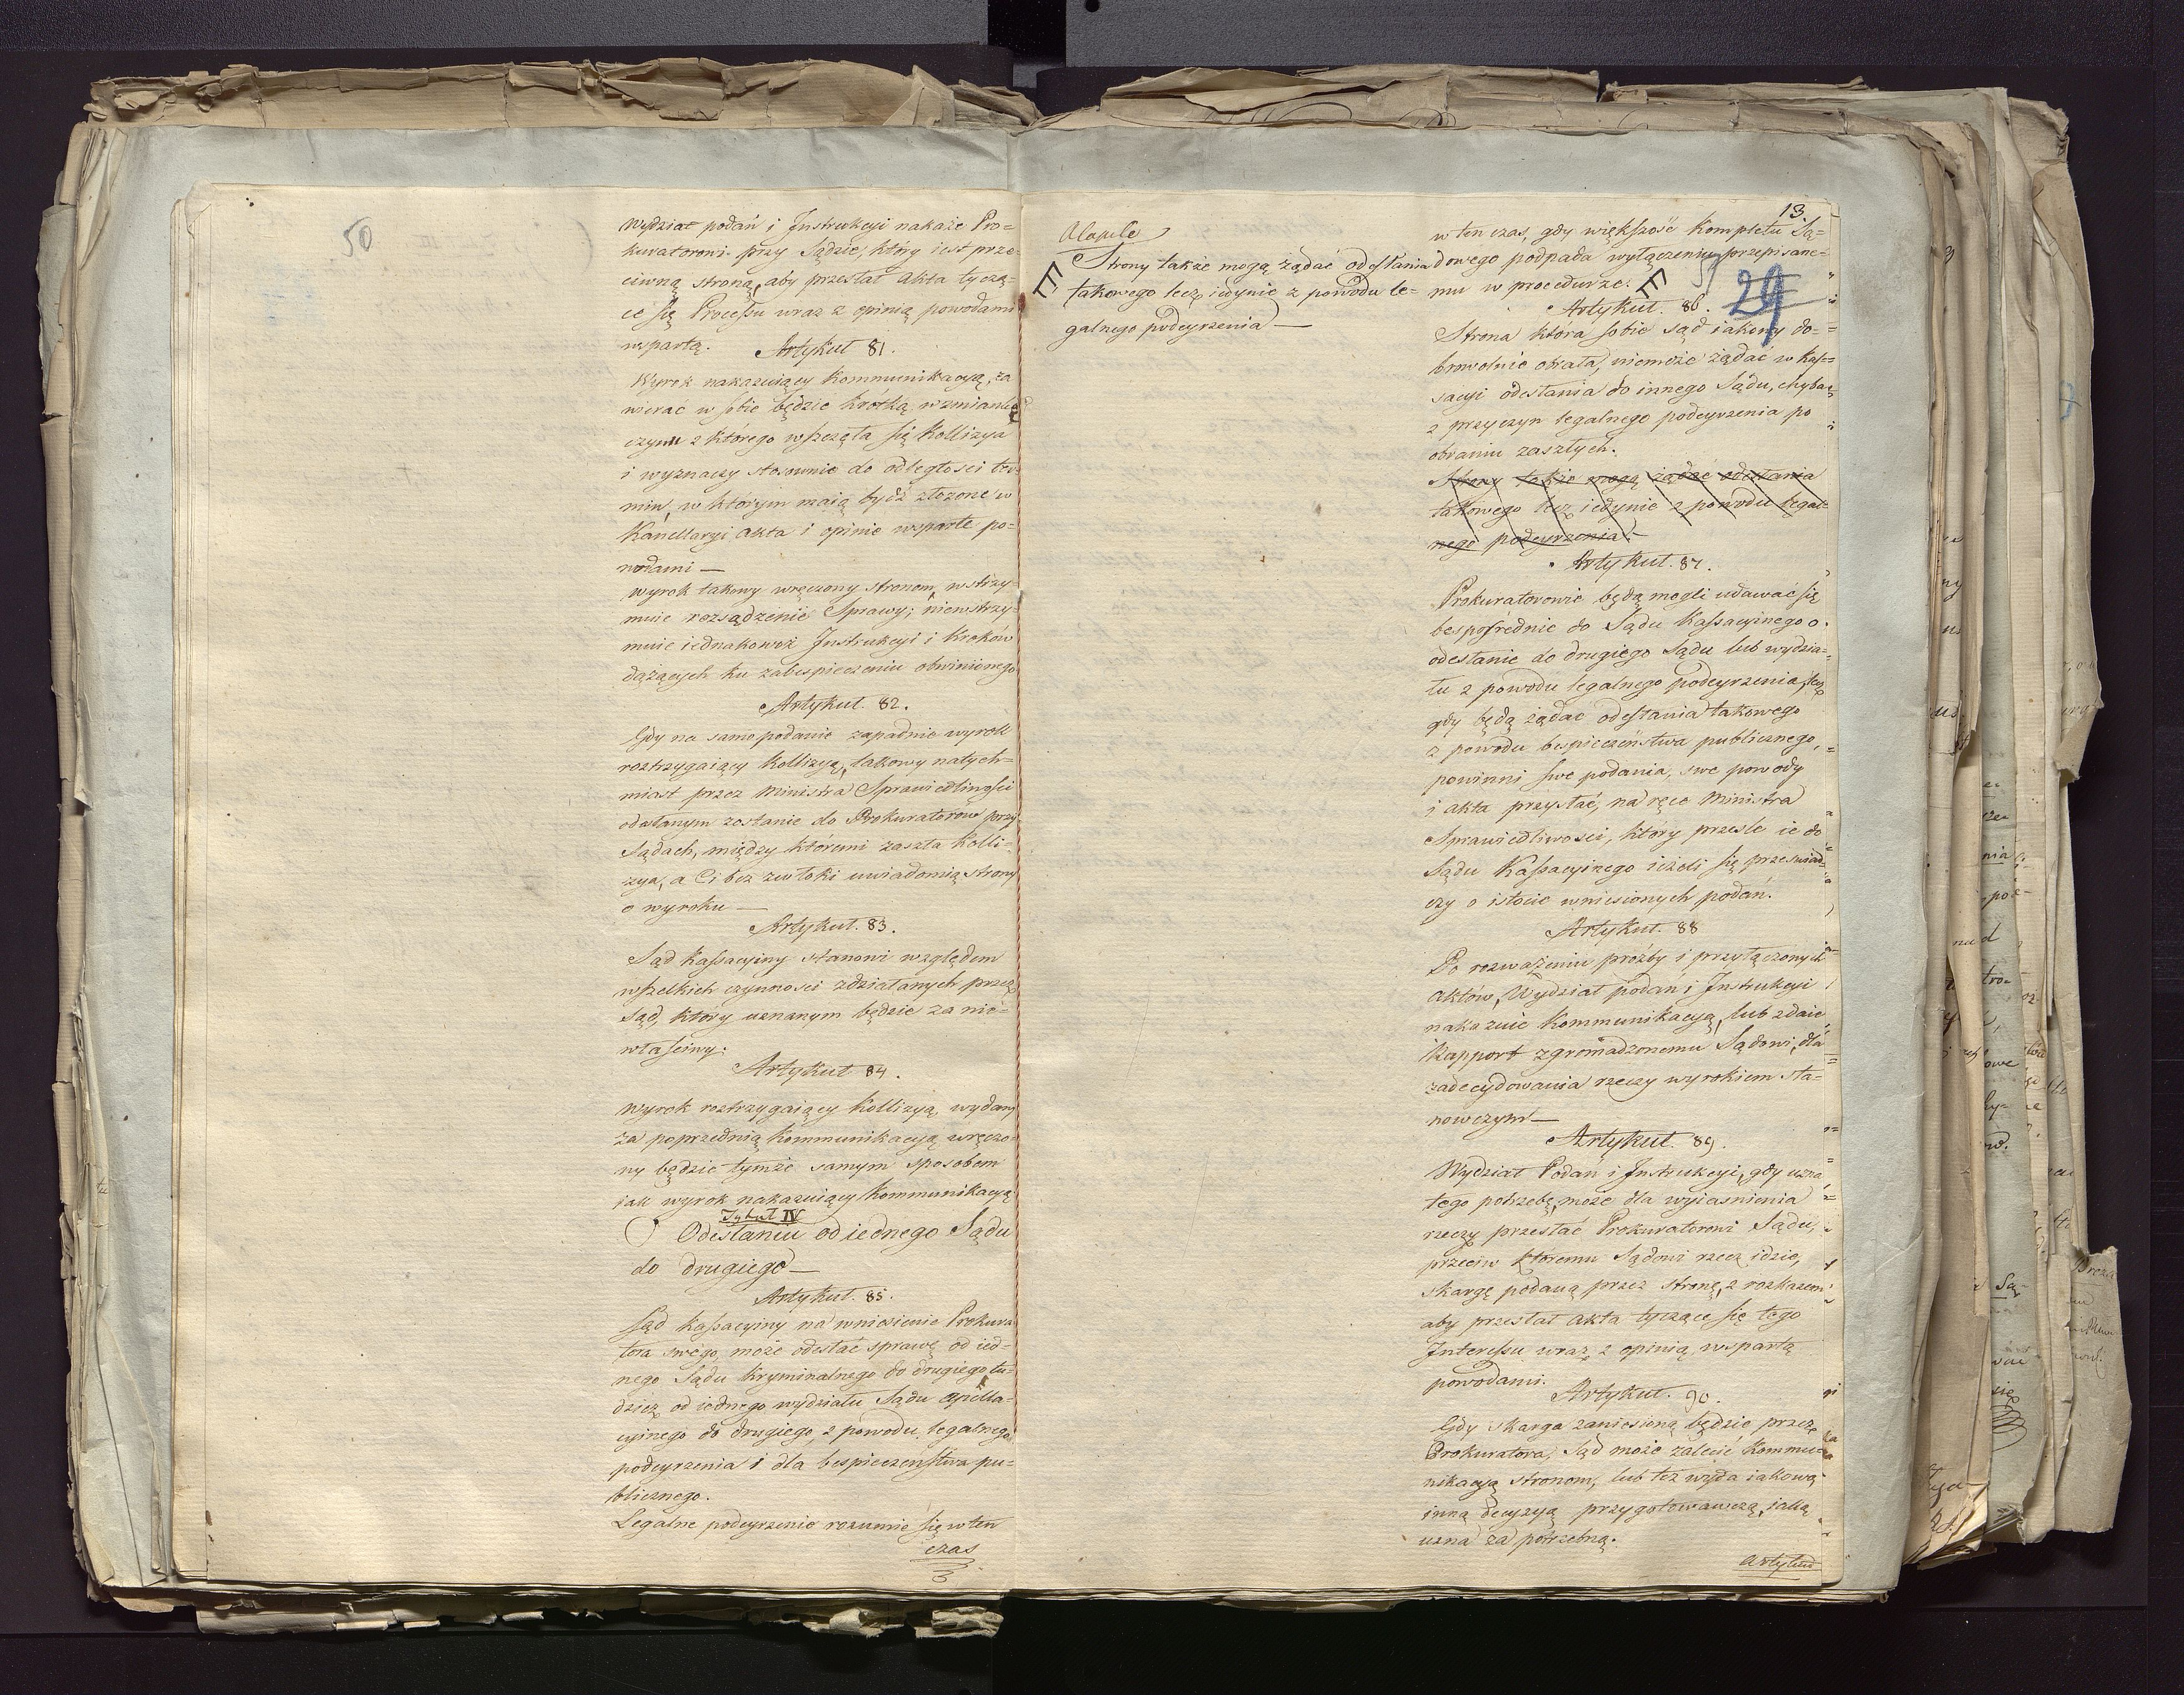 50
Wydział podań i Instrukcyi nakaże Pro=
kuratorowi przy Sądzie, który iest prze=
ciwną stroną, aby przesłał Akta tyczą=
ce się Processu wraz z opinią powodami
wspartą.
Artykuł 81.
Wyrok nakazuiący Kommunikacyą, za
wierać w sobie będzie krótką wzmiankę
czynu z którego wszczęła się Kollizya
i wyznaczy stosownie do odległości ter=
min, w którym maią bydź złożone w
Kancellaryi Akta i opinie wsparte po=
wodami —
Wyrok takowy wręczony stronom, wstrzy=
muie rozsądzenie Sprawy; niewstrzy=
muie iednakowoż Instrukcyi i kroków
dążących ku zabespieczeniu obwinionego
Artykuł 82.
Gdy na samo podanie zapadnie wyrok
roztrzygaiący Kollizyą, takowy natych=
miast przez Ministra Sprawiedliwości
odesłanym zostanie do Prokuratorów przy
Sądach, między któremi zaszła Kolli=
zya, a Ci bez zwłoki uwiadomią strony
o wyroku —
Artykuł. 83.
Sąd Kassacyiny stanowi względem
wszelkich czynności zdziałanych przez
Sąd, który uznanym będzie za nie=
właściwy.
Artykuł 84.
Wyrok roztrzygaiący Kollizyą, wydany
za poprzednią Kommunikacyą wręczo=
ny będzie tymże samym sposobem
jak wyrok nakazuiący Kommunikacyą
Tytuł IV
O Odesłaniu od iednego Sądu
do drugiego —
Artykuł. 85.
Sąd Kassacyiny na wniesienie Prokura
tora swego, może odesłać sprawę od ied=
nego Sądu Kryminalnego do drugiego tu=
dzież od iednego wydziału Sądu Apella=
cyinego do drugiego, z powodu legalnego
podeyrzenia i dla bespieczeństwa pu=
blicznego.
Legalne podeyrzenie rozumie się w ten
czas
Strony także mogą żądać odesłania
takowego lecz iedynie z powodu le=
galnego podeyrzenia —
13
w ten czas, gdy większość Kompletu Są=
dowego podpada wyłączeniu przepisane=
mu w procedurze.
29
Artykuł. 86.
Strona która sobie sąd iakowy do=
browolnie obrała, niemoże żądać w Kas=
sacyi odesłania do innego Sądu, chyba
z przyczyn legalnego podeyrzenia po
obraniu zaszłych.
Strony także mogą żądać odesłania
takowego lecz iedynie z powodu legal=
nego podeyrzenia. —
Artykuł. 87.
Prokuratorowie będą mogli udawać się
bespośrednie do Sądu Kassacyinego o
odesłanie do drugiego Sądu lub wydzia=
łu z powodu legalnego podeyrzenia, lecz
gdy będą żądać odesłania takowego
z powodu bespieczeństwa publicznego,
powinni swe podania, swe powody
i akta przysłać, na ręce Ministra
Sprawiedliwości, który prześle ie do
Sądu Kassacyinego ieżeli się przeświad=
czy o istocie wniesionych podań.
Artykuł. 88
Po rozważeniu proźby i przyłączonych
Aktów, Wydział podań i Instrukcyi
nakazuie Kommunikacyą, lub zdaie
Rapport zgromadzonemu Sądowi, dla
zadecydowania rzeczy wyrokiem sta=
nowczym —
Artykuł. 89.
Wydział Podań i Instrukcyi, gdy uzna
tego potrzebę, może dla wyiaśnienia
rzeczy przesłać Prokuratorowi Sądu,
przeciw któremu Sądowi rzecz idzie,
skargę podaną przez stronę, z rozkazem
aby przesłał akta tyczące się tego
Interessu wraz z opinią wspartą
powodami.
Artykuł. 90.
Gdy skarga zaniesioną będzie przez
Prokuratora, Sąd może zalecić Kommu=
nikacyą stronom, lub też wyda iakową
inną decyzyą przygotowawczą, iaką
uzna za potrzebną.
Artykuł